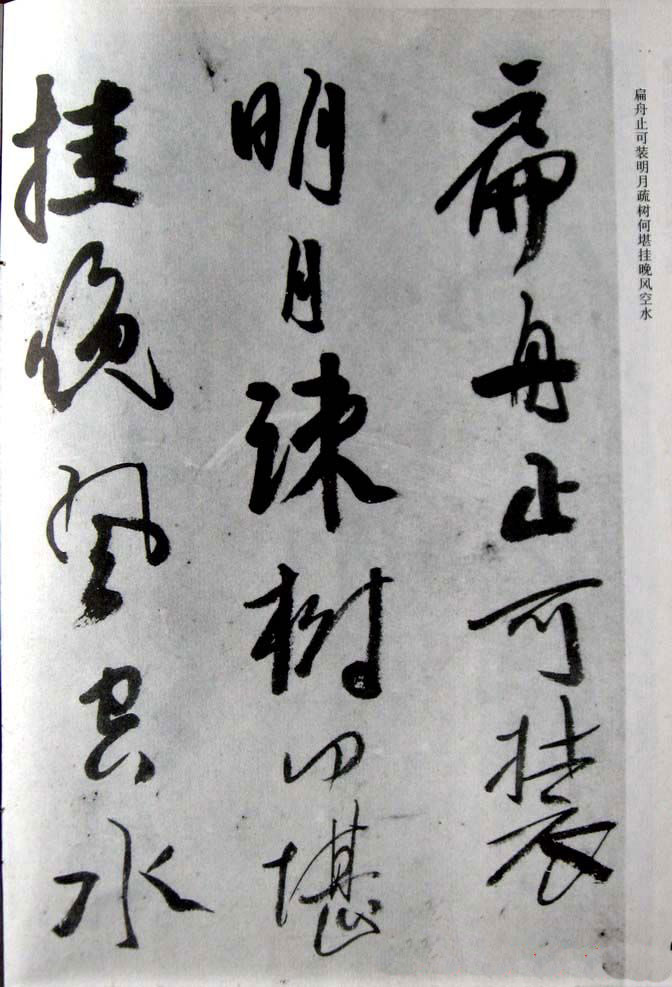 扁舟止可装明月疏树何堪挂晚风空水
扁舟止可装
明月疎树何堪
挂晚风空水